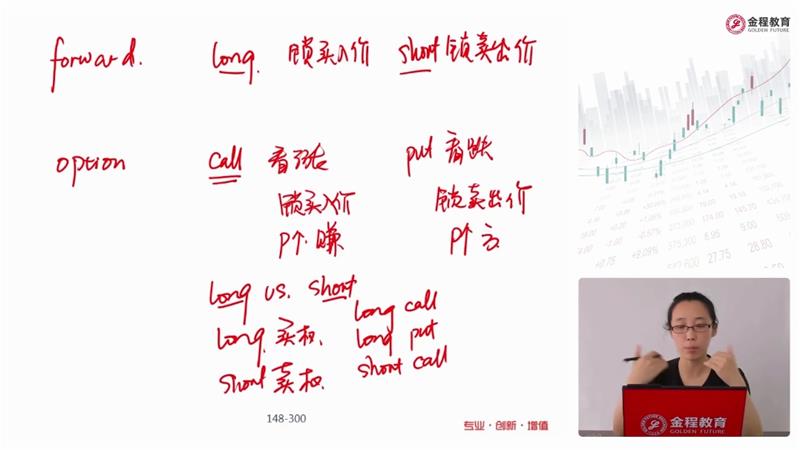 金程教育
GOLDEN FUTURE
forward. long. 锁买入价 short 锁卖出价
option call 看涨 put 看跌
锁买入价 锁卖出价
P↑ 赚 P↑ 亏
long vs. short
long call
long 买权. long put
short 卖权. short call
148-300
专业·创新·增值
金程教育
GOLDEN FUTURE